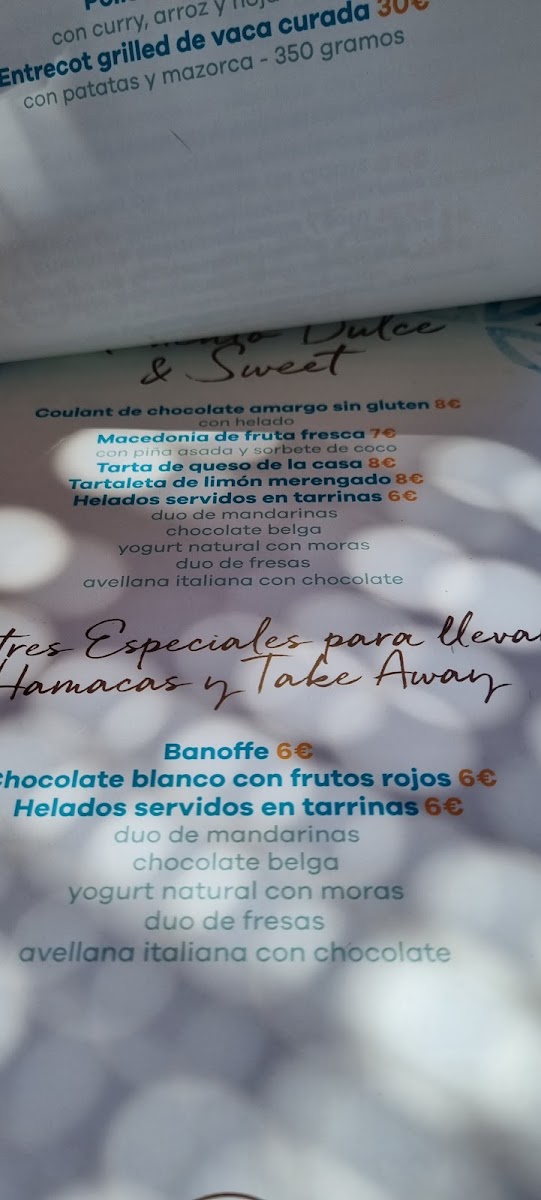 con curry, arroz y
Entrecot grilled de vaca curada 30€
con patatas y mazorca - 350 gramos
Dulce
& Sweet
Coulant de chocolate amargo sin gluten 8€
con helado
Macedonia de fruta fresca 7€
con piña asada y sorbete de coco
Tarta de queso de la casa 8€
Tartaleta de limón merengado 8€
Helados servidos en tarrinas 6€
duo de mandarinas
chocolate belga
yogurt natural con moras
duo de fresas
avellana italiana con chocolate
tres Especiales para lleva
Hamacas y Take Away
Banoffe 6€
Chocolate blanco con frutos rojos 6€
Helados servidos en tarrinas 6€
duo de mandarinas
chocolate belga
yogurt natural con moras
duo de fresas
avellana italiana con chocolate